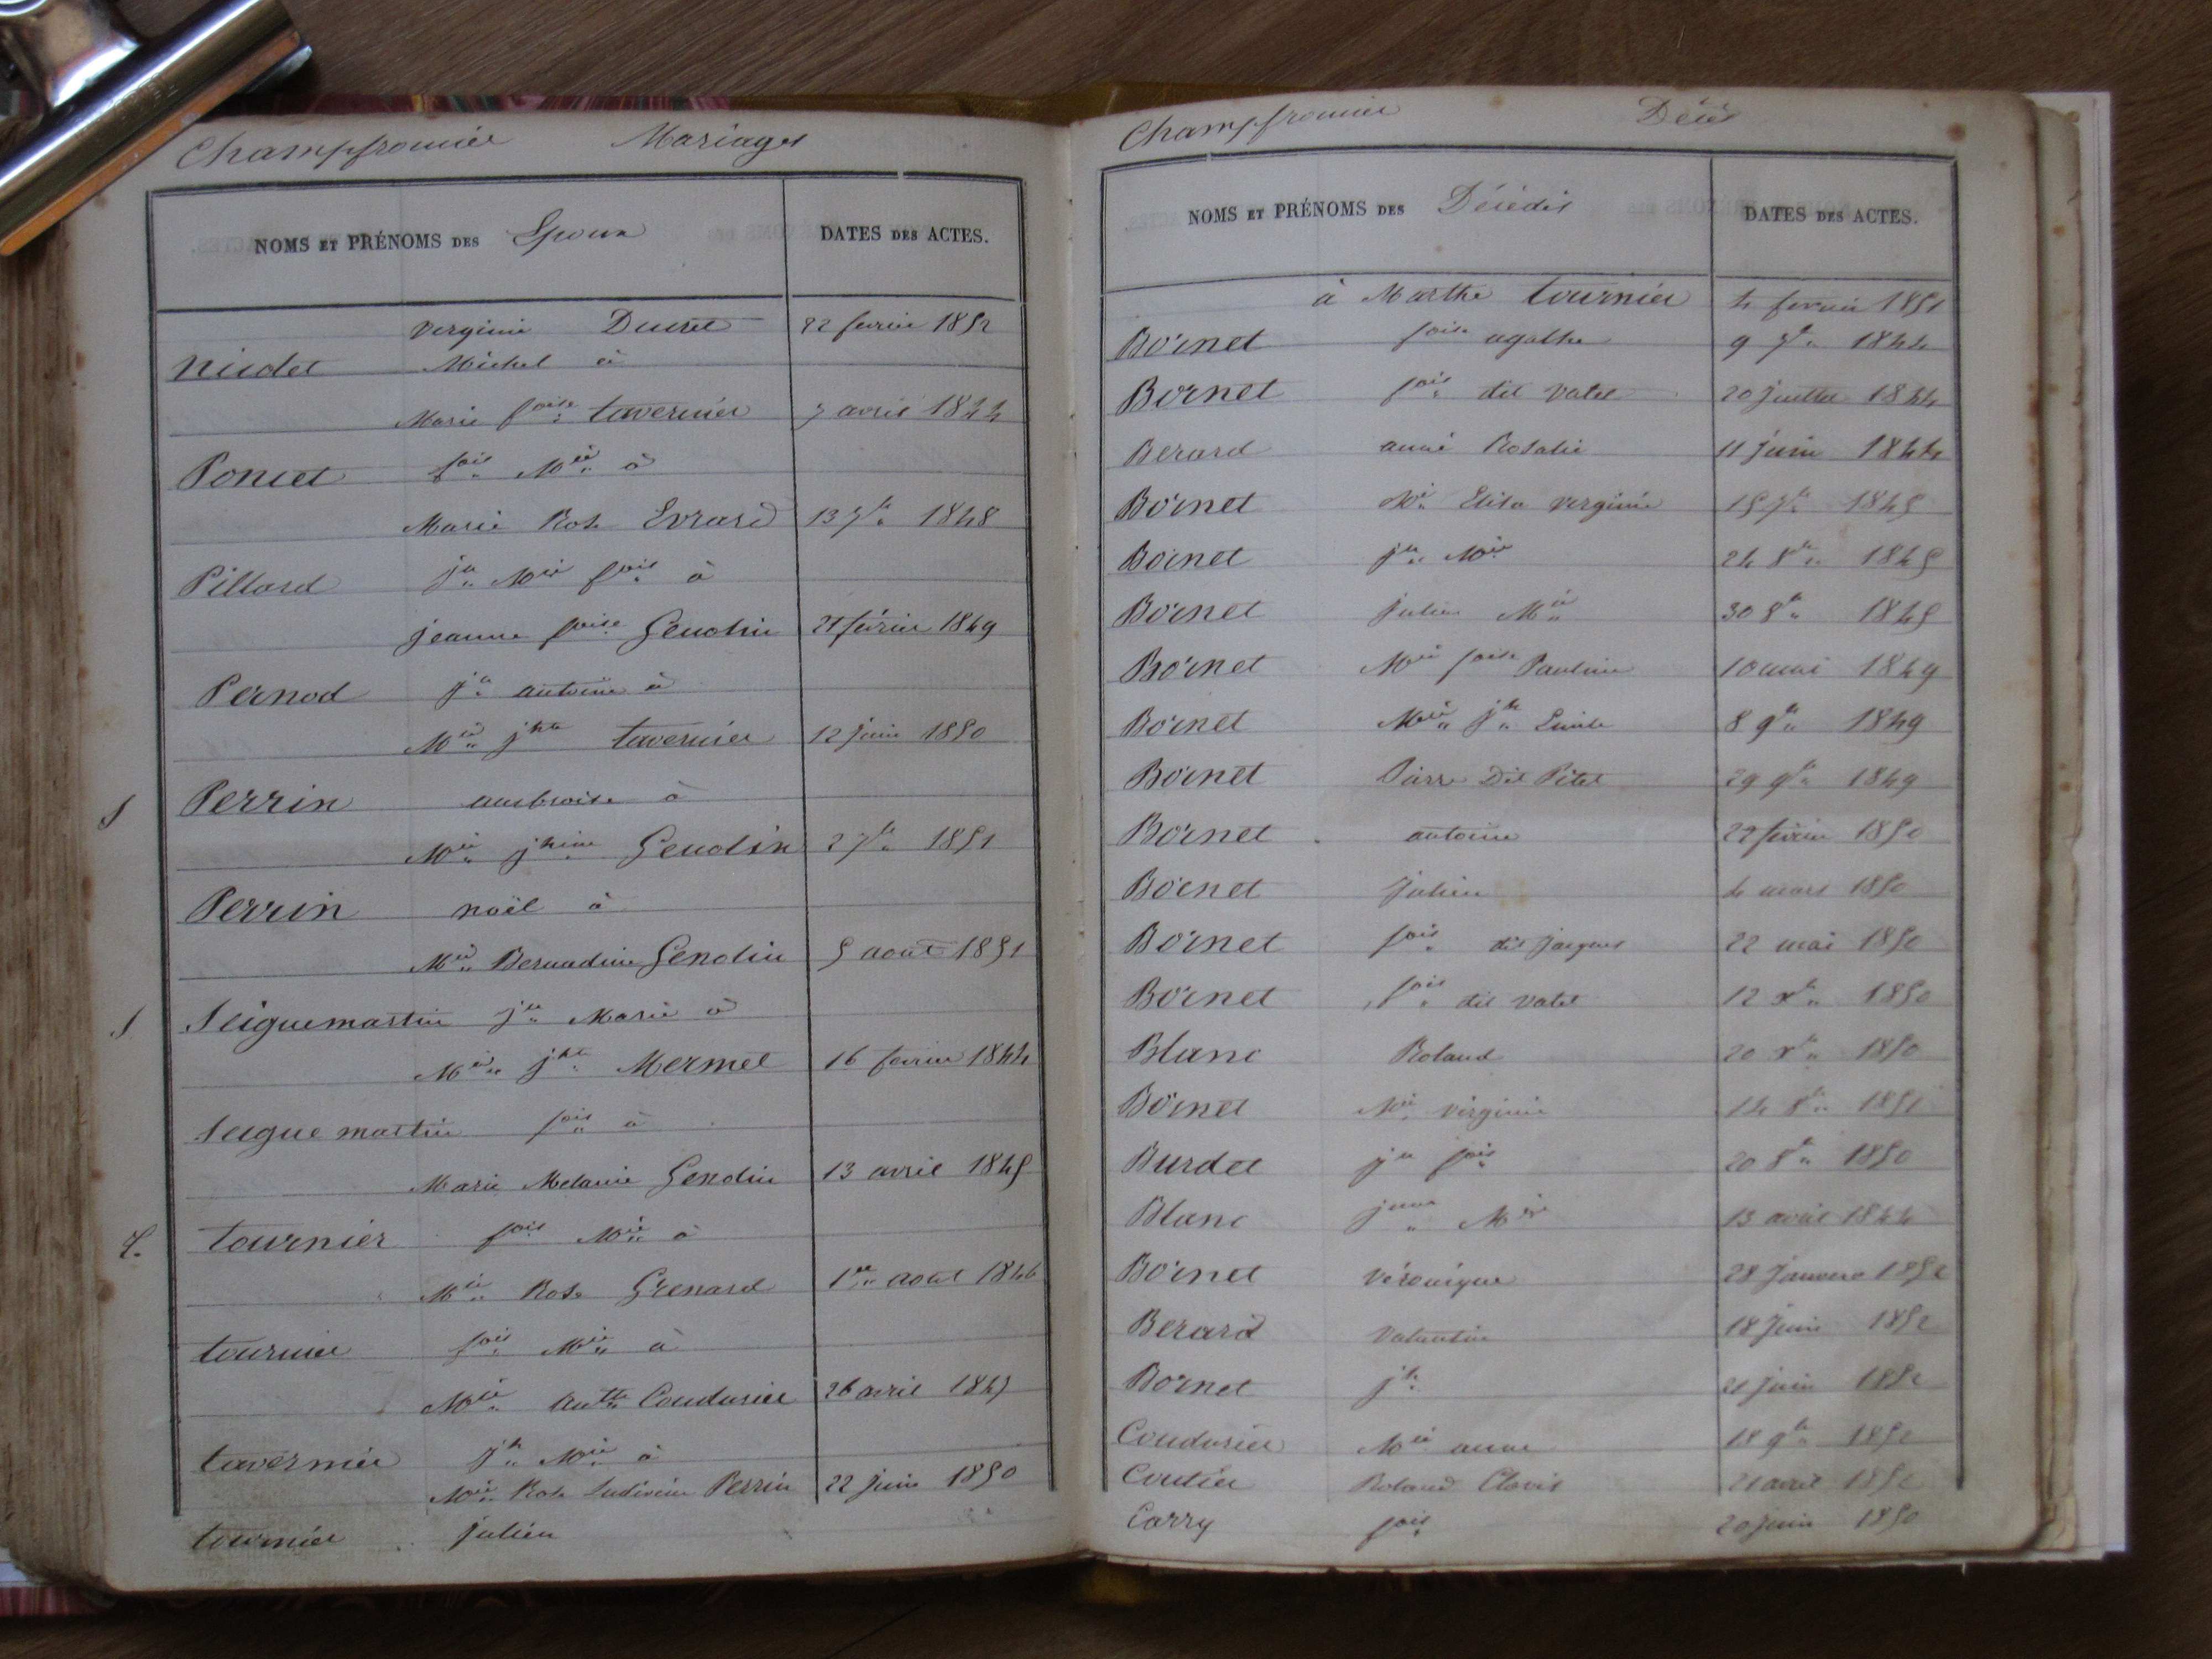 Champfromier Mariages
NOMS ET PRÉNOMS DES Epoux DATES DES ACTES.
virginie Ducret 22 fevrier 1852
Niodet Michel à
Marie foise tavernier 7 avril 1844
Poncet fois Mie à
Marie Rose Evrard 13 7bre 1848
Pillard jn Mie fois à
jeanne foise Gendin 21 février 1849
Pernod jn antoine à
Mie jhte tavernier 12 juin 1850
S Perrin ambroise à
Mie jhine Gendin 2 7bre 1851
Perrin noël à
Mie Bernardine Gendin 5 aout 1851
S Seiguemartin jn Marie à
Mie jhte Mermet 16 fevrier 1844
Seigue martin fois à
Marie Melanie Gendin 13 avril 1845
T. tournier fois Mie à
Mie Rose Grenard 1er aout 1846
tournier fois Mie à
Mie antte Coudurier 26 avril 1849
tavernier jh Mie à
Mie Rose Ludivine Perrin 22 juin 1850
tournier julien
Champfromier Décès
NOMS ET PRÉNOMS DES Décédés DATES DES ACTES.
à Marthe tournier 4 fevrier 1851
Bornet foise agathe 9 7bre 1844
Bornet fois dit valet 20 juillet 1844
Berard anné Rosalie 11 juin 1844
Bornet Mie Elisa virginie 15 7bre 1845
Bornet jn Mie 24 8bre 1845
Bornet julien Mie 30 8bre 1845
Bornet Mie foise Pauline 10 mai 1849
Bornet Mie jh Emile 8 9bre 1849
Bornet Pierre Dit Pitet 29 9bre 1849
Bornet antoine 22 février 1850
Bornet julien 4 mars 1850
Bornet fois dit jacques 22 mai 1850
Bornet fois dit valet 12 xbre 1850
Blanc Roland 20 xbre 1850
Bornet Mie virginie 14 8bre 1851
Burdet jn fois 20 8bre 1850
Blanc Mie 13 avril 1844
Bornet véronique 28 janvier 1852
Berard valentin 18 juin 1852
Bornet jh 21 juin 1852
Coudurier Mie anne 18 9bre 1852
Coutier Roland Clovis 21 avril 1852
Carry fois 20 juin 1850